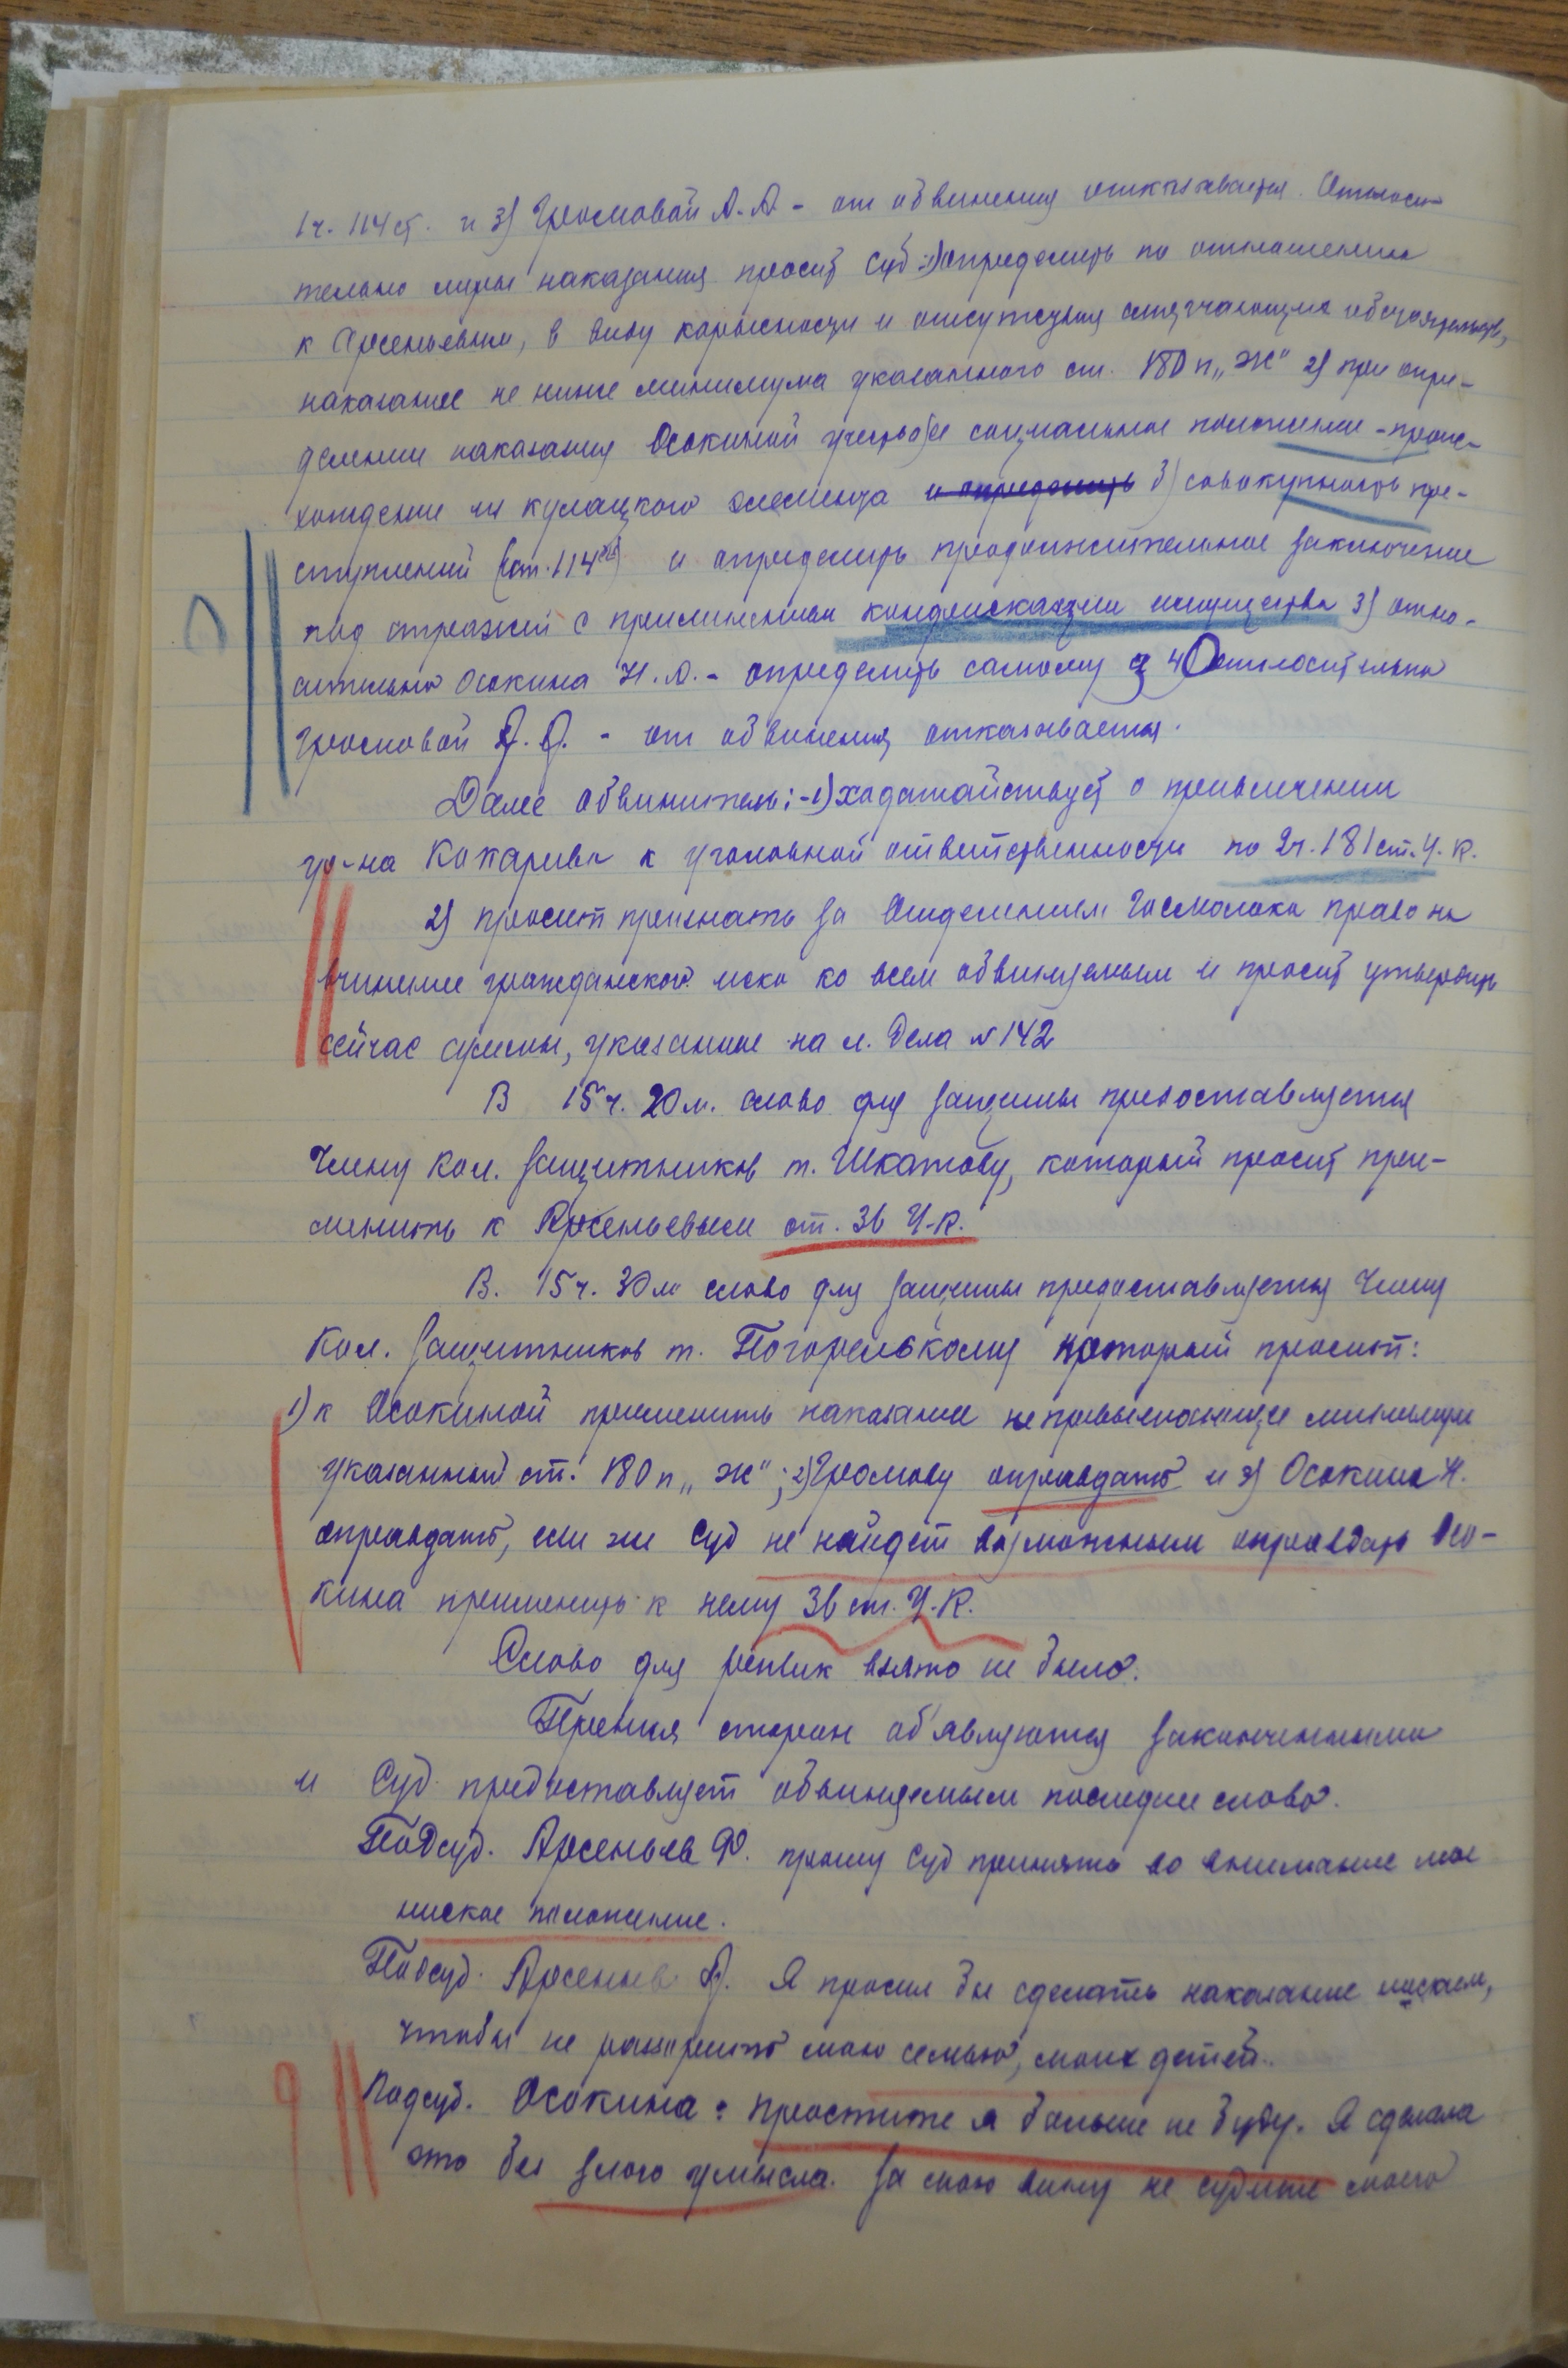 1 ч. 114 ст. и 3) Громовой А. А. - от обвинения отказывается. Относи-
тельно меры наказания просит Суд: 1) определить по отношению
к Арсеньевым, в виду корысности и отсутствия смягчающих обстоятельств,
наказание не ниже минимума указанного ст. 180 п „Ж" 2) при опре-
делении наказания Осокиной учесть ее социальное положение - проис-
хождение из кулацкого элемента и определить 3) совокупность пре-
ступлений (ст. 114) и определить продолжительное заключение
под стражей с применением конфискации имущества 3) отно-
сительно Осокина Н. А. - определить самому 4) Относительно
Громовой А. А. - от обвинения отказывается.
Далее обвинитель: - 1) ходатайствует о привлечении
гр-на Кокарева к уголовной ответственности по 2 ч. 181 ст. У. К.
2) просит признать за Отделением Госмолоко право на
вчинение гражданского иска ко всем обвиняемым и просит утвердить
сейчас суммы, указанные на л. Дела № 142
В 15 ч. 20 м. слово для защиты предоставляется
Члену Кол. Защитников т. Шкатову, который просит при-
менить к Арсеньевым ст. 36 У. К.
В. 15 ч. 30 м слово для защиты предоставляется Члену
Кол. Защитников т. Погорельскому который просит:
1) к Осокиной применить наказание непревышающее минимум
указанный ст. 180 п „Ж"; 2) Громову оправдать и 3) Осокина Н.
оправдать, если же Суд не найдет возможным оправдать Осо-
кина применить к нему 36 ст. У. К.
Слово для реплик взято не было.
Прения сторон об'являются законченными
и Суд предоставляет обвиняемым последнее слово.
Подсуд. Арсеньев Ф. прошу Суд принять во внимание мое
ниское положение.
Подсуд. Арсеньев А. Я просил бы сделать наказание ниским,
чтобы не разорить мою семью, моих детей.
Подсуд. Осокина: простите я больше не буду. Я сделала
это без злого умысла. За мою вину не судите моего